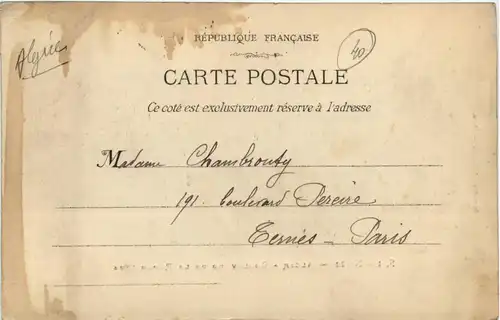 Algérie
RÉPUBLIQUE FRANÇAISE
40
CARTE POSTALE
Ce coté est exclusivement réservé à l'adresse
Madame Chambrouty
191. boulevard Pereire
Ternes - Paris